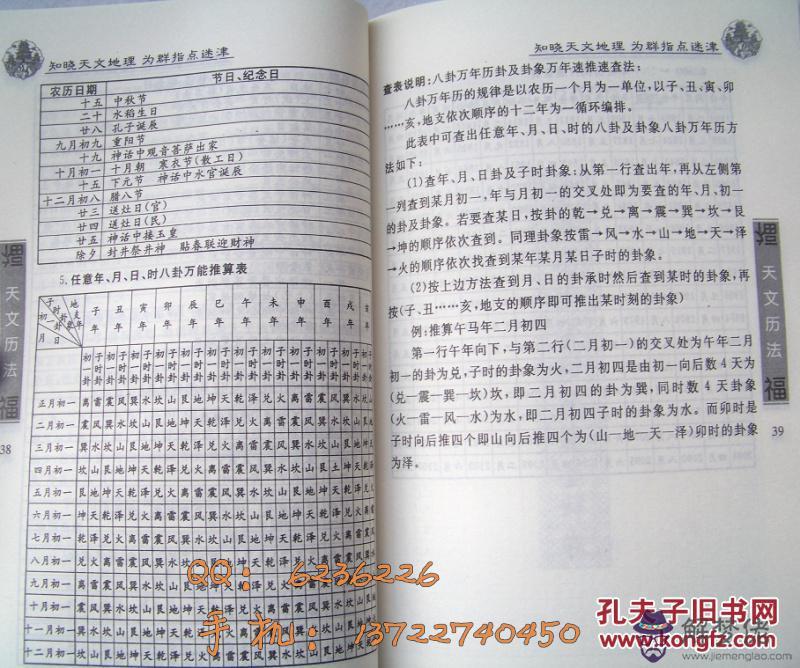 知晓天文地理 为群指点迷津
农历日期 节日、纪念日
十五 中秋节
二十 水稻生日
廿八 孔子诞辰
九月初九 重阳节
十九 神话中观音菩萨出家
十月初一 十月朝 寒衣节(散工日)
十五 下元节 神话中水官诞辰
十二月初八 腊八节
廿三 送灶日(官)
廿四 送灶日(民)
廿五 神话中接玉皇
除夕 封井祭井神 贴春联迎财神
5.任意年、月、日、时八卦万能推算表
子 丑 寅 卯 辰 巳 午 未 申 酉 戌 亥
年 年 年 年 年 年 年 年 年 年 年 年
月 日
正月初一 离雷震风巽水坎山艮地坤天乾泽兑火离雷震风巽水坎山
二月初一 震风巽水坎山艮地坤天乾泽兑火离雷震风巽水坎山艮地
三月初一 巽水坎山艮地坤天乾泽兑火离雷震风巽水坎山艮地坤天
四月初一 坎山艮地坤天乾泽兑火离雷震风巽水坎山艮土坤天乾泽
五月初一 艮地坤天乾泽兑火离雷震风巽水坎山艮地坤天乾泽兑火
六月初一 坤天乾泽兑火离雷震风巽水坎山艮地坤天乾泽兑火离雷
七月初一 乾泽兑火离雷震风巽水坎山艮地坤天乾泽兑火离雷震风
八月初一 兑火离雷震风巽水坎山艮地坤天乾泽兑火离雷震风巽水
九月初一
十月初一
十一月初一
十二月初一
天文历法
福
38
知晓天文地理 为群指点迷津
查表说明:八卦万年历卦及卦象万年速推速查法:
八卦万年历的规律是以农历一个月为一单位,以子、丑、寅、卯
……亥,地支依次顺序的十二年为一循环编排。
此表中可查出任意年、月、日、时的八卦及卦象八卦万年历方
法如下:
(1)查年、月、日卦及子时卦象:从第一行查出年,再从左侧第
一列查到某月初一,年与月初一的交叉处即为要查的年、月、初一
的卦及卦象。若要查某日,按卦的乾→兑→离→震→巽→坎→艮
→坤的顺序依次查到。同理卦象按雷→风→水→山→地→天→泽
→火的顺序依次找查到某年某月某日子时的卦象。
(2)按上边方法查到日的卦承时然后查到某时的卦象,再
按(子、丑……亥,地支的顺序即可推出某时刻的卦象)
例:推算午马年二月初四
第一行午年向下,与第二行(二月初一)的交叉处为午年二月
初一的卦为兑,子时的卦象为火,二月初四是由初一向后数4天为
(兑—震—巽—坎)坎,即二月初四的卦为巽,同时数4天卦象
(火—雷—风—水)为水,即二月初四子时的卦象为水。而卯时是
子时向后推四个即山向后推四个为(山—地—天—泽)卯时的卦象
为泽。
天文历法
福
39
QQ: 6236226
手机: 13722740450
孔夫子旧书网
www.kongfz.com
解梦佬
www.jiemenglao.com